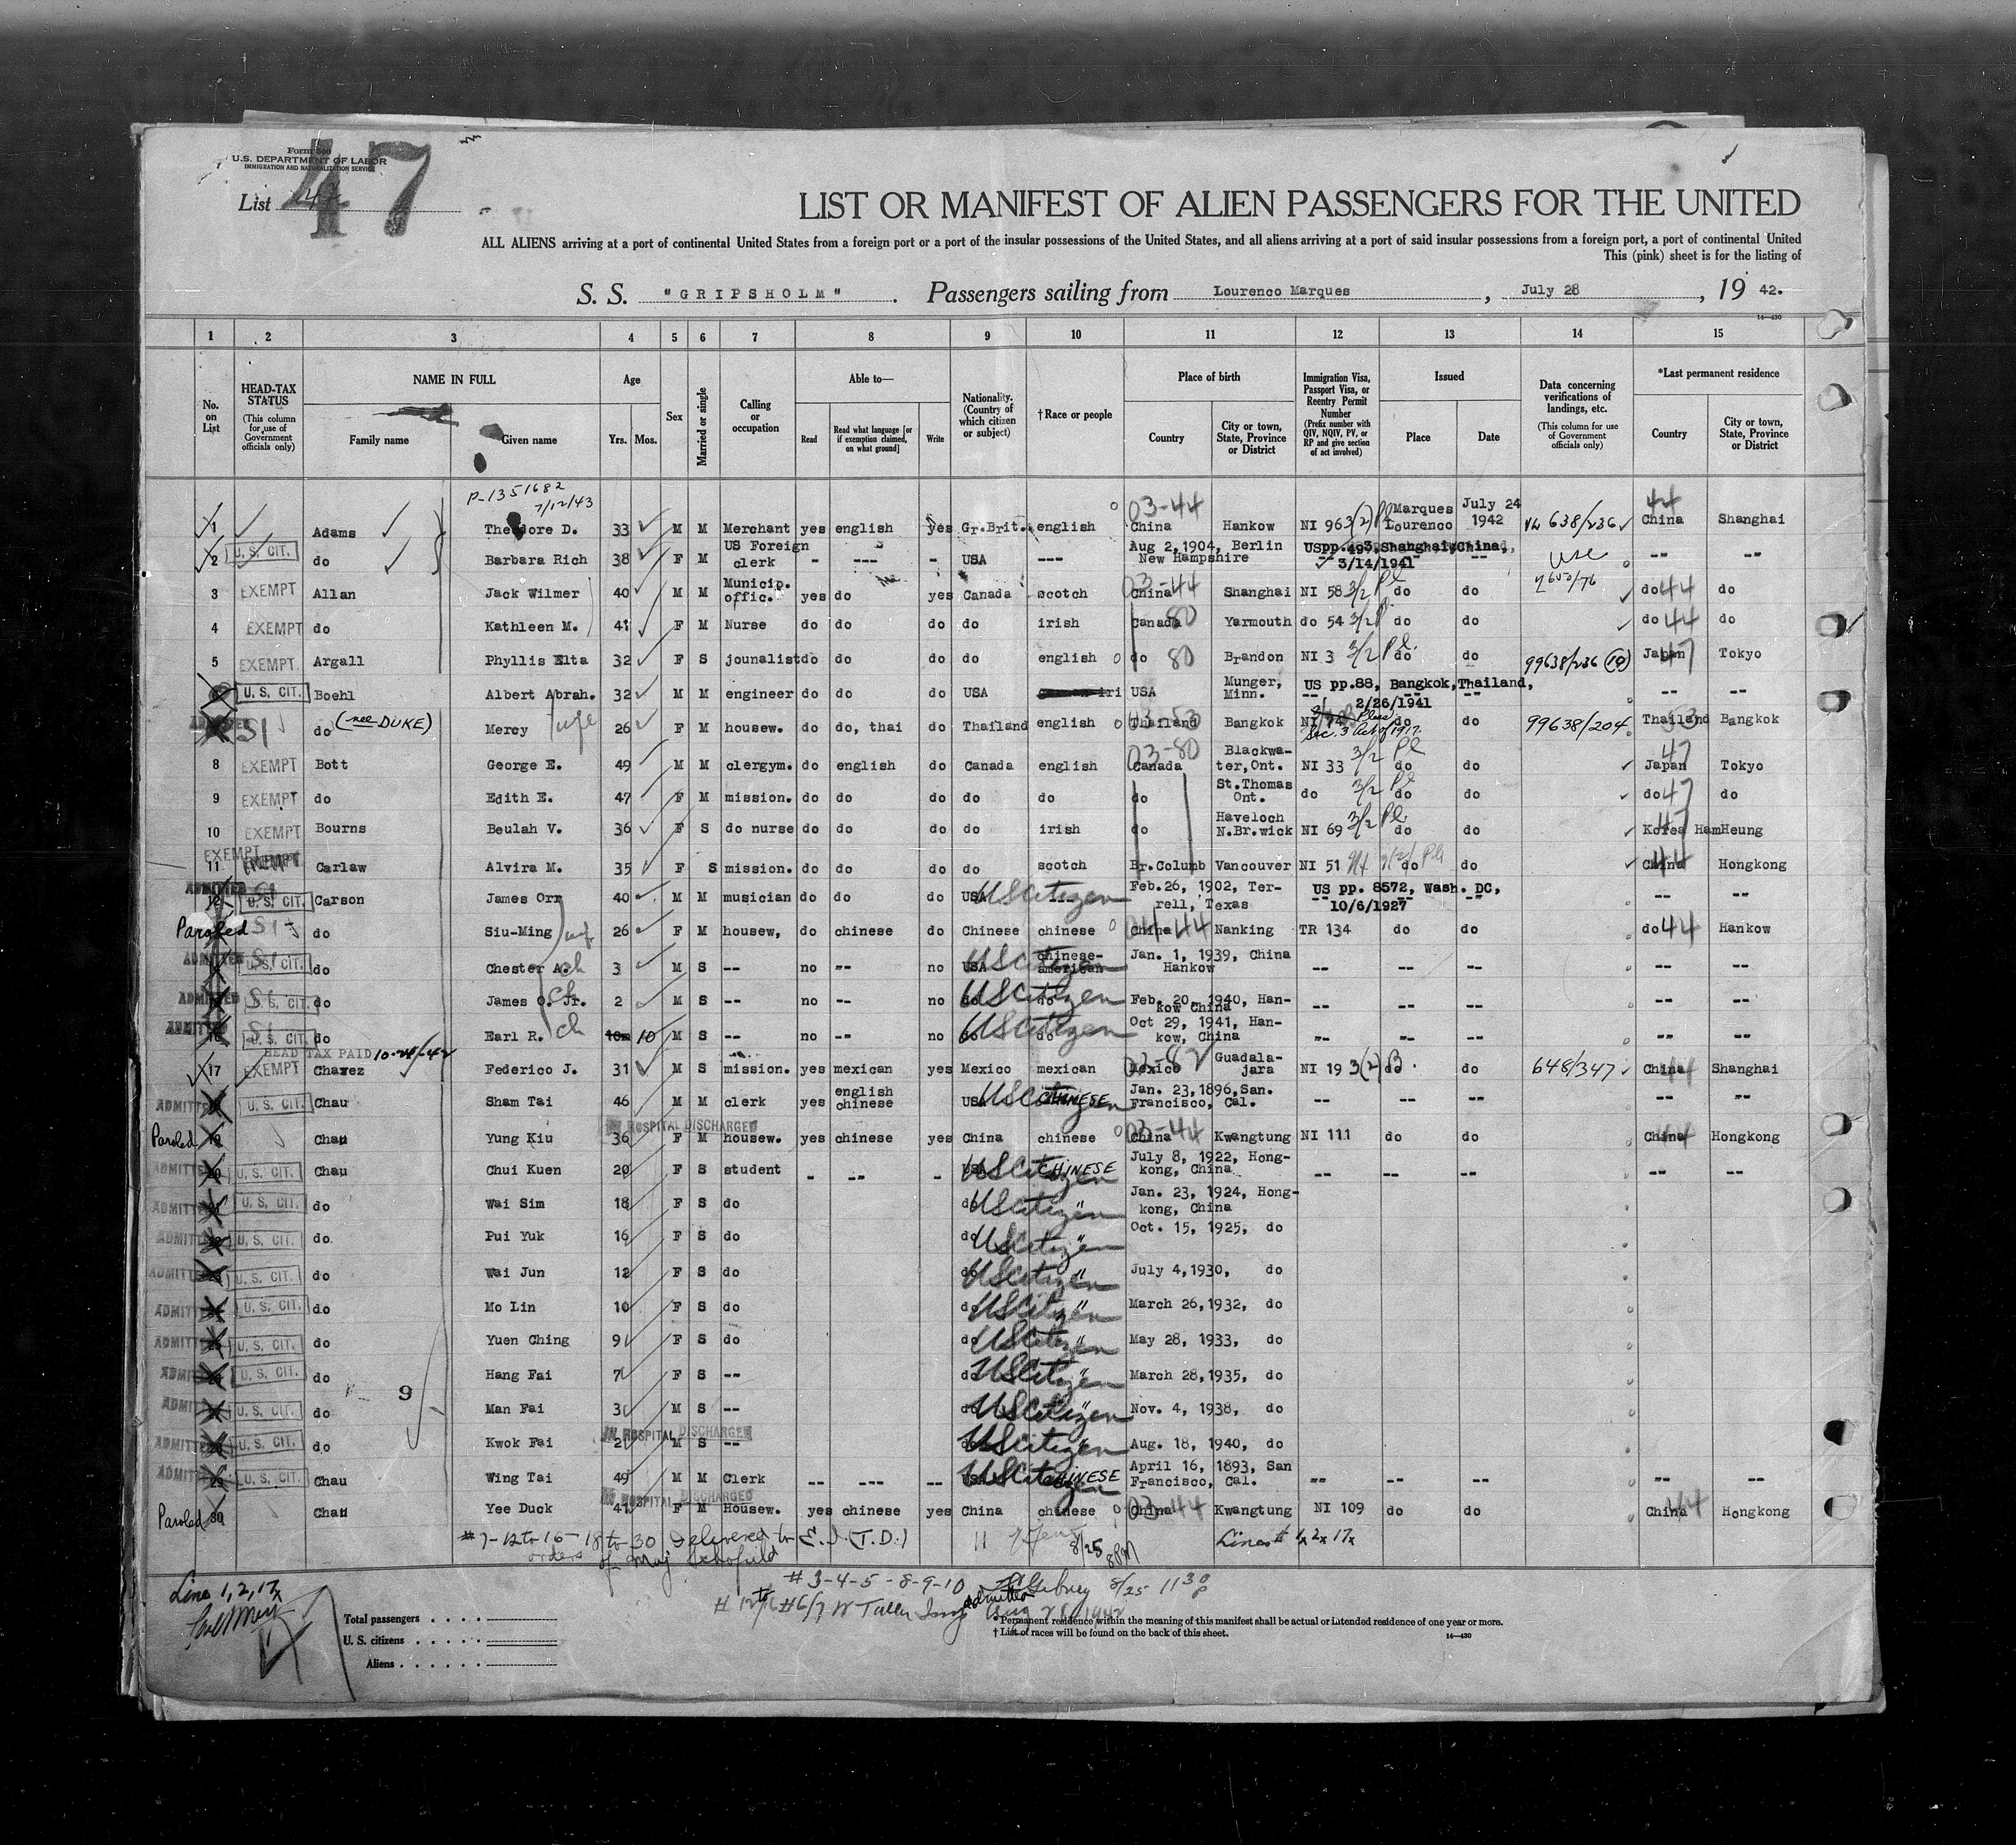 47
Form 500
U.S. DEPARTMENT OF LABOR
IMMIGRATION AND NATURALIZATION SERVICE
List
LIST OR MANIFEST OF ALIEN PASSENGERS FOR THE UNITED
ALL ALIENS arriving at a port of continental United States from a foreign port or a port of the insular possessions of the United States, and all aliens arriving at a port of said insular possessions from a foreign port, a port of continental United
This (pink) sheet is for the listing of
S. S. "GRIPSHOLM". Passengers sailing from Lourenco Marques, July 28, 19 42.
14—430
1 2 3 4 5 6 7 8 9 10 11 12 13 14 15
No. on List
HEAD-TAX STATUS (This column for use of Government officials only)
NAME IN FULL Family name Given name
Age Yrs. Mos.
Sex
Married or single
Calling or occupation
Able to— Read Read what language [or if exemption claimed, on what ground] Write
Nationality. (Country of which citizen or subject)
†Race or people
Place of birth Country City or town, State, Province or District
Immigration Visa, Passport Visa, or Reentry Permit Number (Prefix number with QIV, NQIV, PV, or RP and give section of act involved)
Issued Place Date
Data concerning verifications of landings, etc. (This column for use of Government officials only)
*Last permanent residence Country City or town, State, Province or District
P-1351682
7/12/43
1 Adams Theodore D. 33 M M Merchant yes english yes Gr.Brit. english 03-44 China Hankow NI 963(2) Marques Lourenco July 24 1942 638/236 44 China Shanghai
2 U. S. CIT. do Barbara Rich 38 F M US Foreign clerk - --- - USA --- Aug 2, 1904, Berlin New Hampshire USpp.493,Shanghai,China, 3/14/1941 USC -- --
3 EXEMPT Allan Jack Wilmer 40 M M Municip. offic. yes do yes Canada scotch 03-44 China Shanghai NI 58 3/2 Pl do do do 44 do
4 EXEMPT do Kathleen M. 41 F M Nurse do do do do irish Canada 80 Yarmouth do 54 3/2 do do do 44 do
5 EXEMPT Argall Phyllis Elta 32 F S jounalist do do do do english do 80 Brandon NI 3 3/2 Pl. do do 99638/236 (19) Japan 47 Tokyo
U. S. CIT. Boehl Albert Abrah. 32 M M engineer do do do USA iri USA Munger, Minn. US pp.88, Bangkok,Thailand, -- 2/26/1941 -- -- -- --
S1 do (nee DUKE) Mercy wife 26 F M housew. do do, thai do Thailand english Thailand Bangkok NI Sec. 3 Act of 1917. do do 99638/204 Thailand 53 Bangkok
8 EXEMPT Bott George E. 49 M M clergym. do english do Canada english 03-80 Canada Blackwa-ter,Ont. NI 33 3/2 Pl do do 47 Japan Tokyo
9 EXEMPT do Edith E. 47 F M mission. do do do do do do St.Thomas Ont. do 3/2 Pl do do do 47 do
10 EXEMPT Bourns Beulah V. 36 F S do nurse do do do do irish do Haveloch N.Br.wick NI 69 3/2 Pl do do Korea 47 HamHeung
11 EXEMPT EXEMPT Carlaw Alvira M. 35 F S mission. do do do do scotch Br.Columb Vancouver NI 51 do do China 44 Hongkong
ADMITTED 12 S1 U. S. CIT. Carson James Orr 40 M M musician do do do USA US Citizen Feb.26, 1902, Ter-rell, Texas US pp. 8572, Wash. DC, -- 10/6/1927 -- -- --- --
Paroled S1 do Siu-Ming wife 26 F M housew, do chinese do Chinese chinese 04-44 China Nanking TR 134 do do do 44 Hankow
ADMITTED S1 U. S. CIT. do Chester A. ch 3 M S -- no -- no USA US Citizen chinese-american Jan. 1, 1939, China Hankow -- -- -- -- --
ADMITTED S1 U. S. CIT. do James O. Jr. ch 2 M S -- no -- no do US Citizen do Feb. 20, 1940, Han-kow China -- -- -- -- --
ADMITTED 16 S1 U. S. CIT. do Earl R. ch 10m 10 M S -- no -- no do US Citizen do Oct 29, 1941, Han-kow, China -- -- -- -- --
HEAD TAX PAID 10-28-42
17 EXEMPT Chavez Federico J. 31 M S mission. yes mexican yes Mexico mexican 03-82 Mexico Guadala-jara NI 19 3(2) do do 648/347 China 44 Shanghai
ADMITTED U. S. CIT. Chau Sham Tai 46 M M clerk yes english chinese USA US Citizen CHINESE Jan. 23,1896,San. Francisco, Cal. -- -- -- -- --
IN HOSPITAL DISCHARGED
Paroled 19 Chau Yung Kiu 36 F M housew. yes chinese yes China chinese 03-44 China Kwangtung NI 111 do do China 44 Hongkong
ADMITTED 20 U. S. CIT. Chau Chui Kuen 20 F S student - -- - USA US Citizen CHINESE July 8, 1922, Hong-kong, China -- -- -- -- --
ADMITTED 21 U. S. CIT. do Wai Sim 18 F S do do US Citizen " Jan. 23, 1924, Hong-kong, China
ADMITTED 22 U. S. CIT. do. Pui Yuk 16 F S do do US Citizen " Oct. 15, 1925, do
ADMITTED 23 U. S. CIT. do Wai Jun 12 F S do do US Citizen " July 4,1930, do
ADMITTED 24 U. S. CIT. do Mo Lin 10 F S do do US Citizen " March 26,1932, do
ADMITTED 25 U. S. CIT. do Yuen Ching 9 F S do do US Citizen " May 28, 1933, do
ADMITTED U. S. CIT. do Hang Fai 7 F S -- do US Citizen " March 28,1935, do
9
ADMITTED U. S. CIT. do Man Fai 3 M S -- do US Citizen " Nov. 4, 1938, do
IN HOSPITAL DISCHARGED
ADMITTED 28 U. S. CIT. do Kwok Fai 2 M S -- do US Citizen " Aug. 18, 1940, do
ADMITTED 29 U. S. CIT. Chau Wing Tai 49 M M Clerk -- --- -- USA US Citizen CHINESE April 16, 1893, San Francisco, Cal. -- -- -- -- --
IN HOSPITAL DISCHARGED
Paroled 30 Chau Yee Duck 41 F M Housew. yes chinese yes China chinese 03-44 China Kwangtung NI 109 do do China 44 Hongkong
#7-12 to 16-18 to 30 Delivered to E. I. (T.D.) 8/25 8PM Lines # 1x 2x 17x
orders of Maj Schofield
Line 1, 2, 17x
#3-4-5-8-9-10 8/25 11 30 P
#6/7 W Tuller Insp admitted Aug 28 1942
Total passengers . . . .
U. S. citizens . . . . .
Aliens . . . . . .
*Permanent residence within the meaning of this manifest shall be actual or intended residence of one year or more.
†List of races will be found on the back of this sheet. 14—430